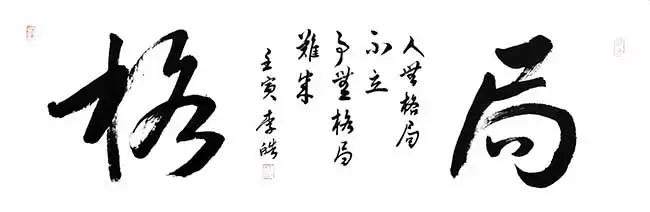 格局
人無格局
不立
事無格局
難成
壬寅李皓